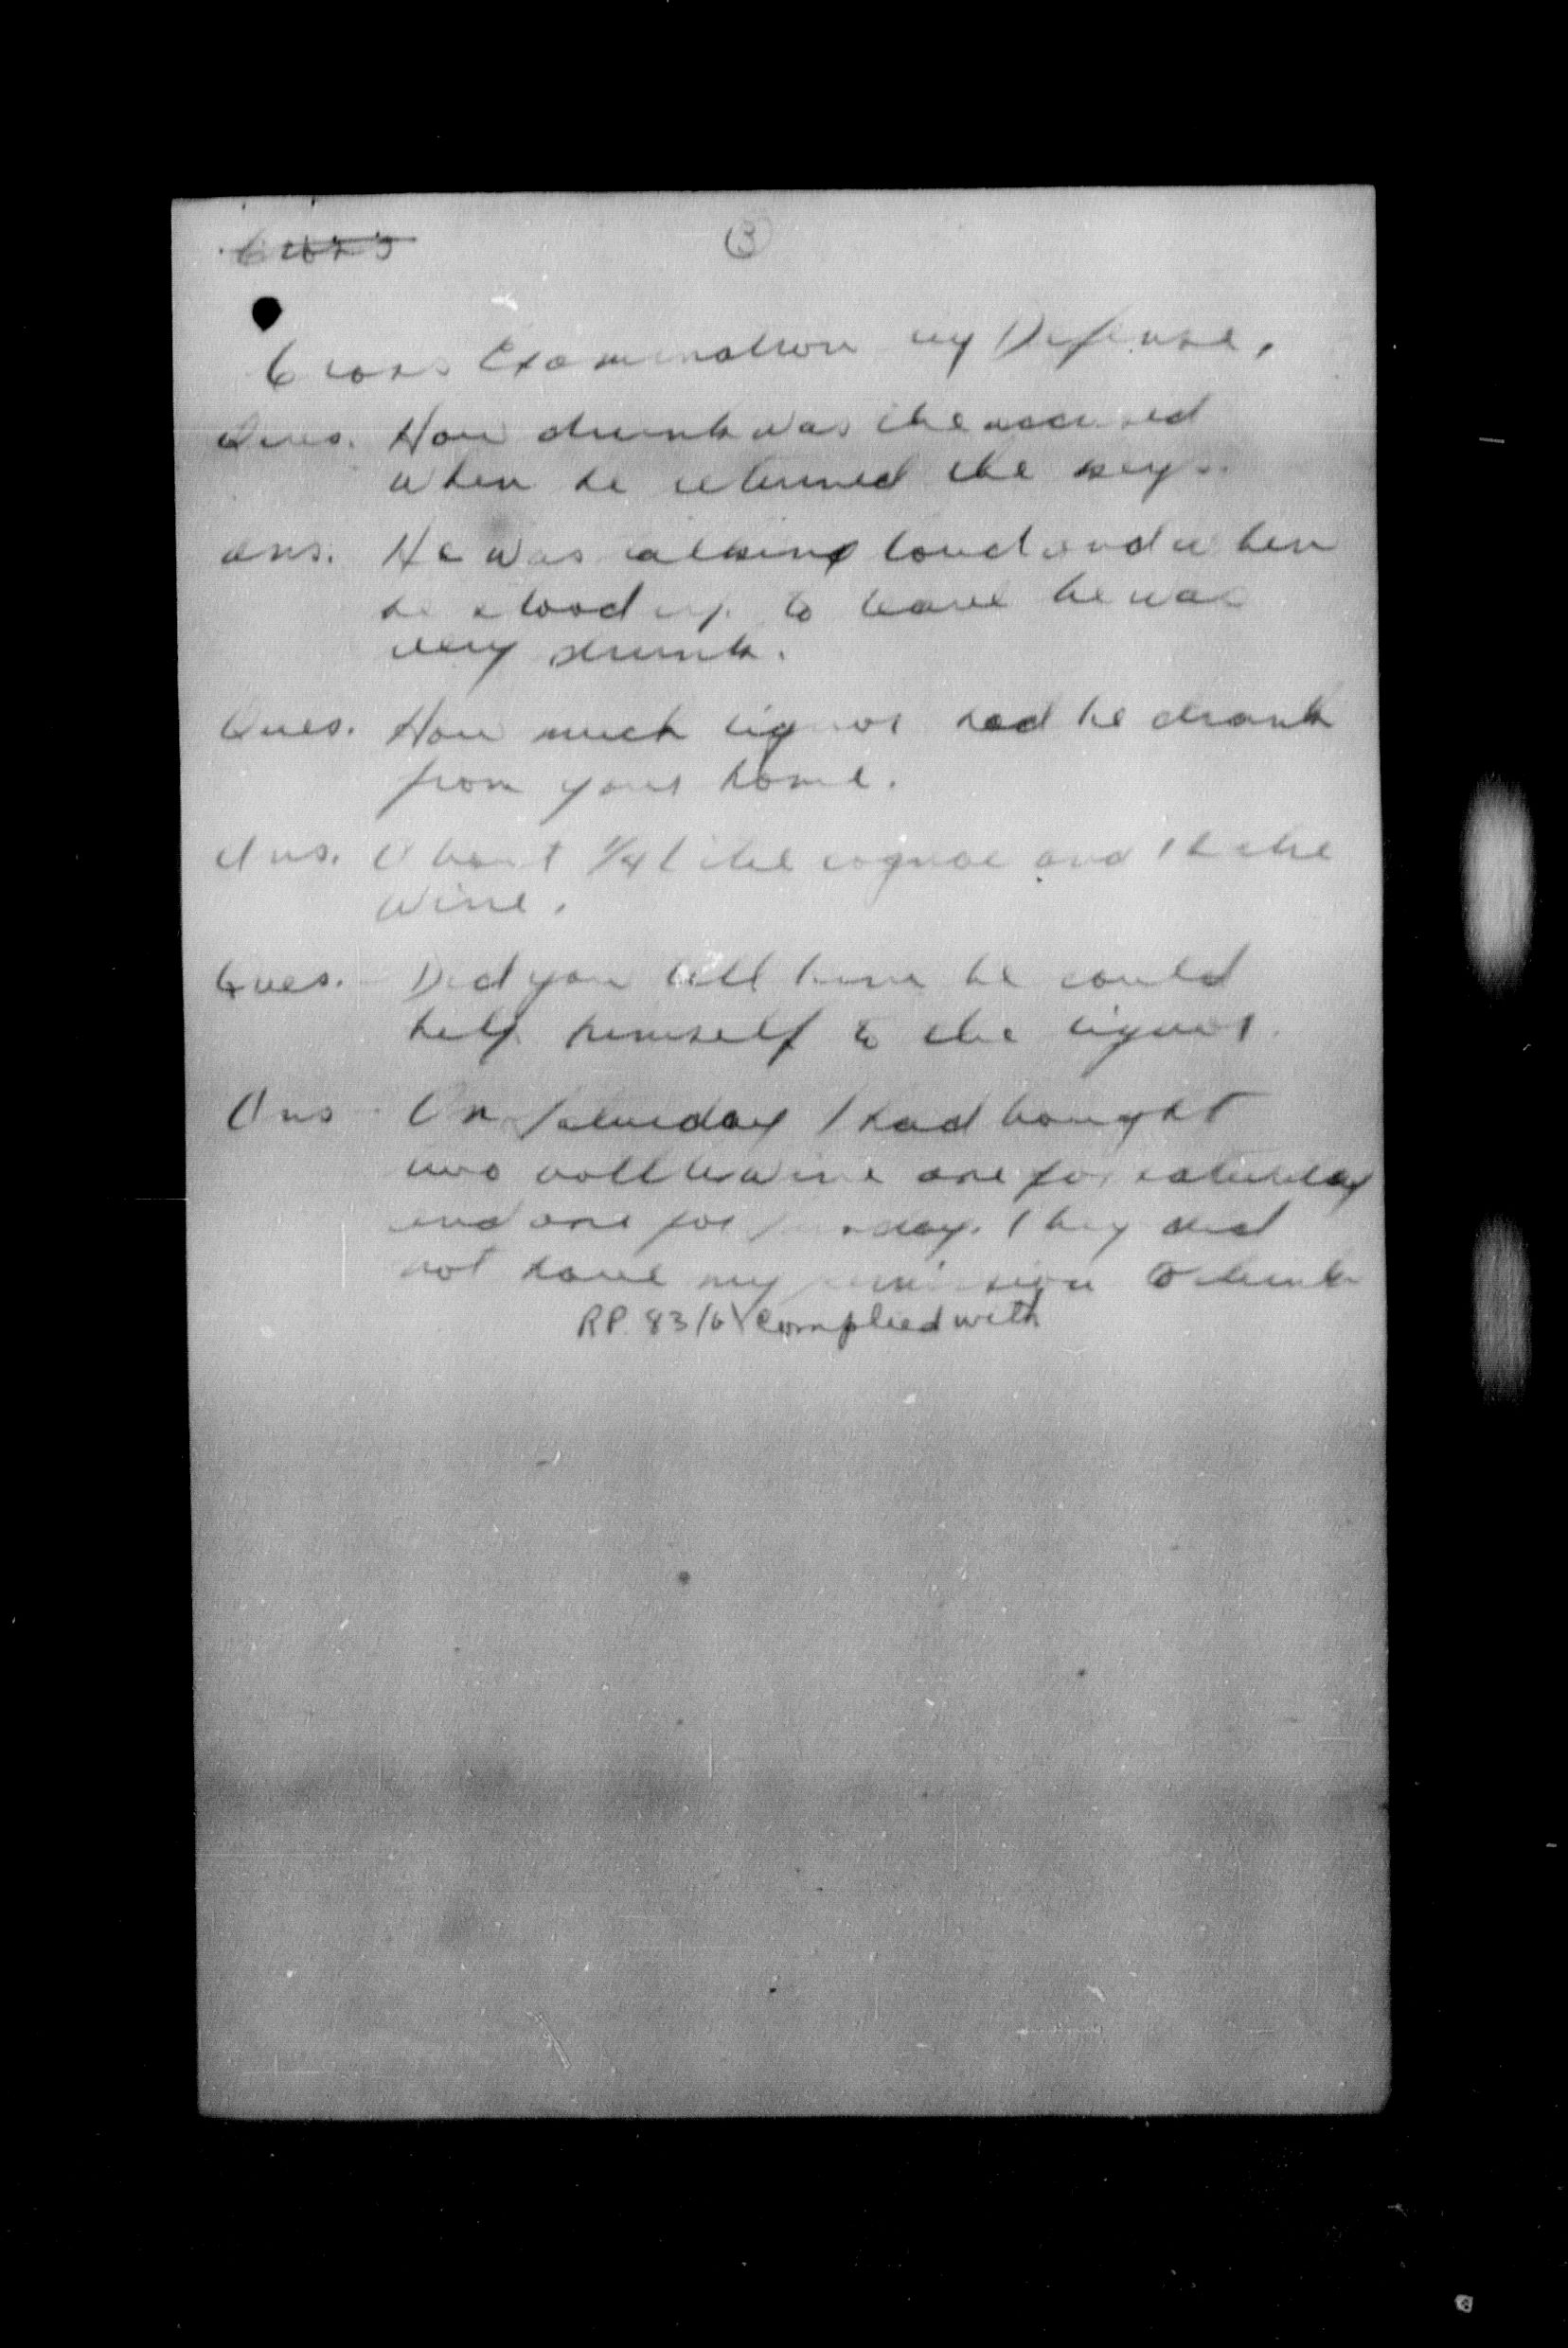 ③
Cross Examination by Defense.
Ques. How drunk was the accused
when he returned the keys.
Ans. He was talking loud and when
he stood up to leave he was
very drunk.
Ques. How much liquor had he drank
from your home.
Ans. About 1/4 litre cognac and 1 litre
wine.
Ques. Did you tell him he could
help himself to the liquor.
Ans On Saturday I had bought
two bottles wine one for saturday
and one for sunday. They did
not have my permission to drink
RP. 83/6 Complied with